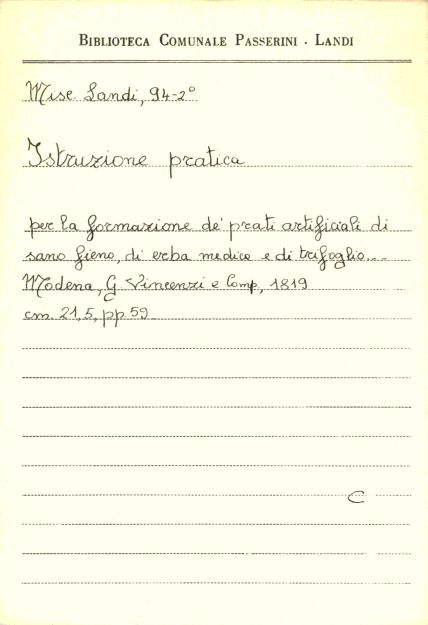 BIBLIOTECA COMUNALE PASSERINI - LANDI
Misc. Landi, 94-2°
Istruzione pratica
per la formazione de' prati artificiali di
sano fieno, di erba medica e di trifoglio...
Modena, G. Vincenzi e Comp, 1819
cm. 21,5, pp 59
C